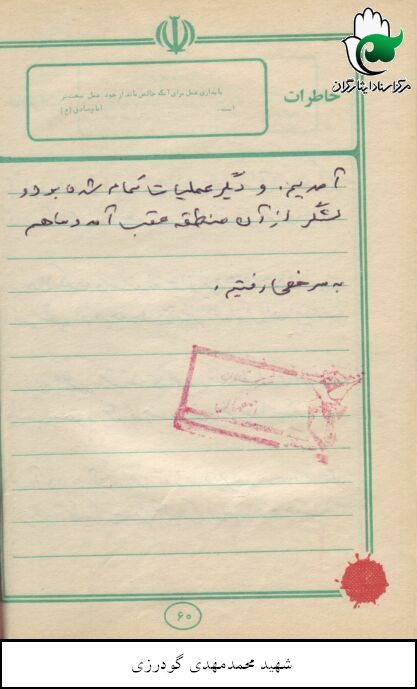 مرکز اسناد ایثارگران
خاطرات
پایداری عمل برای آنکه خالص بماند از خود عمل سخت‌تر
است. امام صادق (ع)
آمدیم. و دیگر عملیات تمام شده بود و
لشگر از آن منطقه عقب آمد و ماهم
به مرخصی رفتیم.
۶۰
شهید محمدمهدی گودرزی